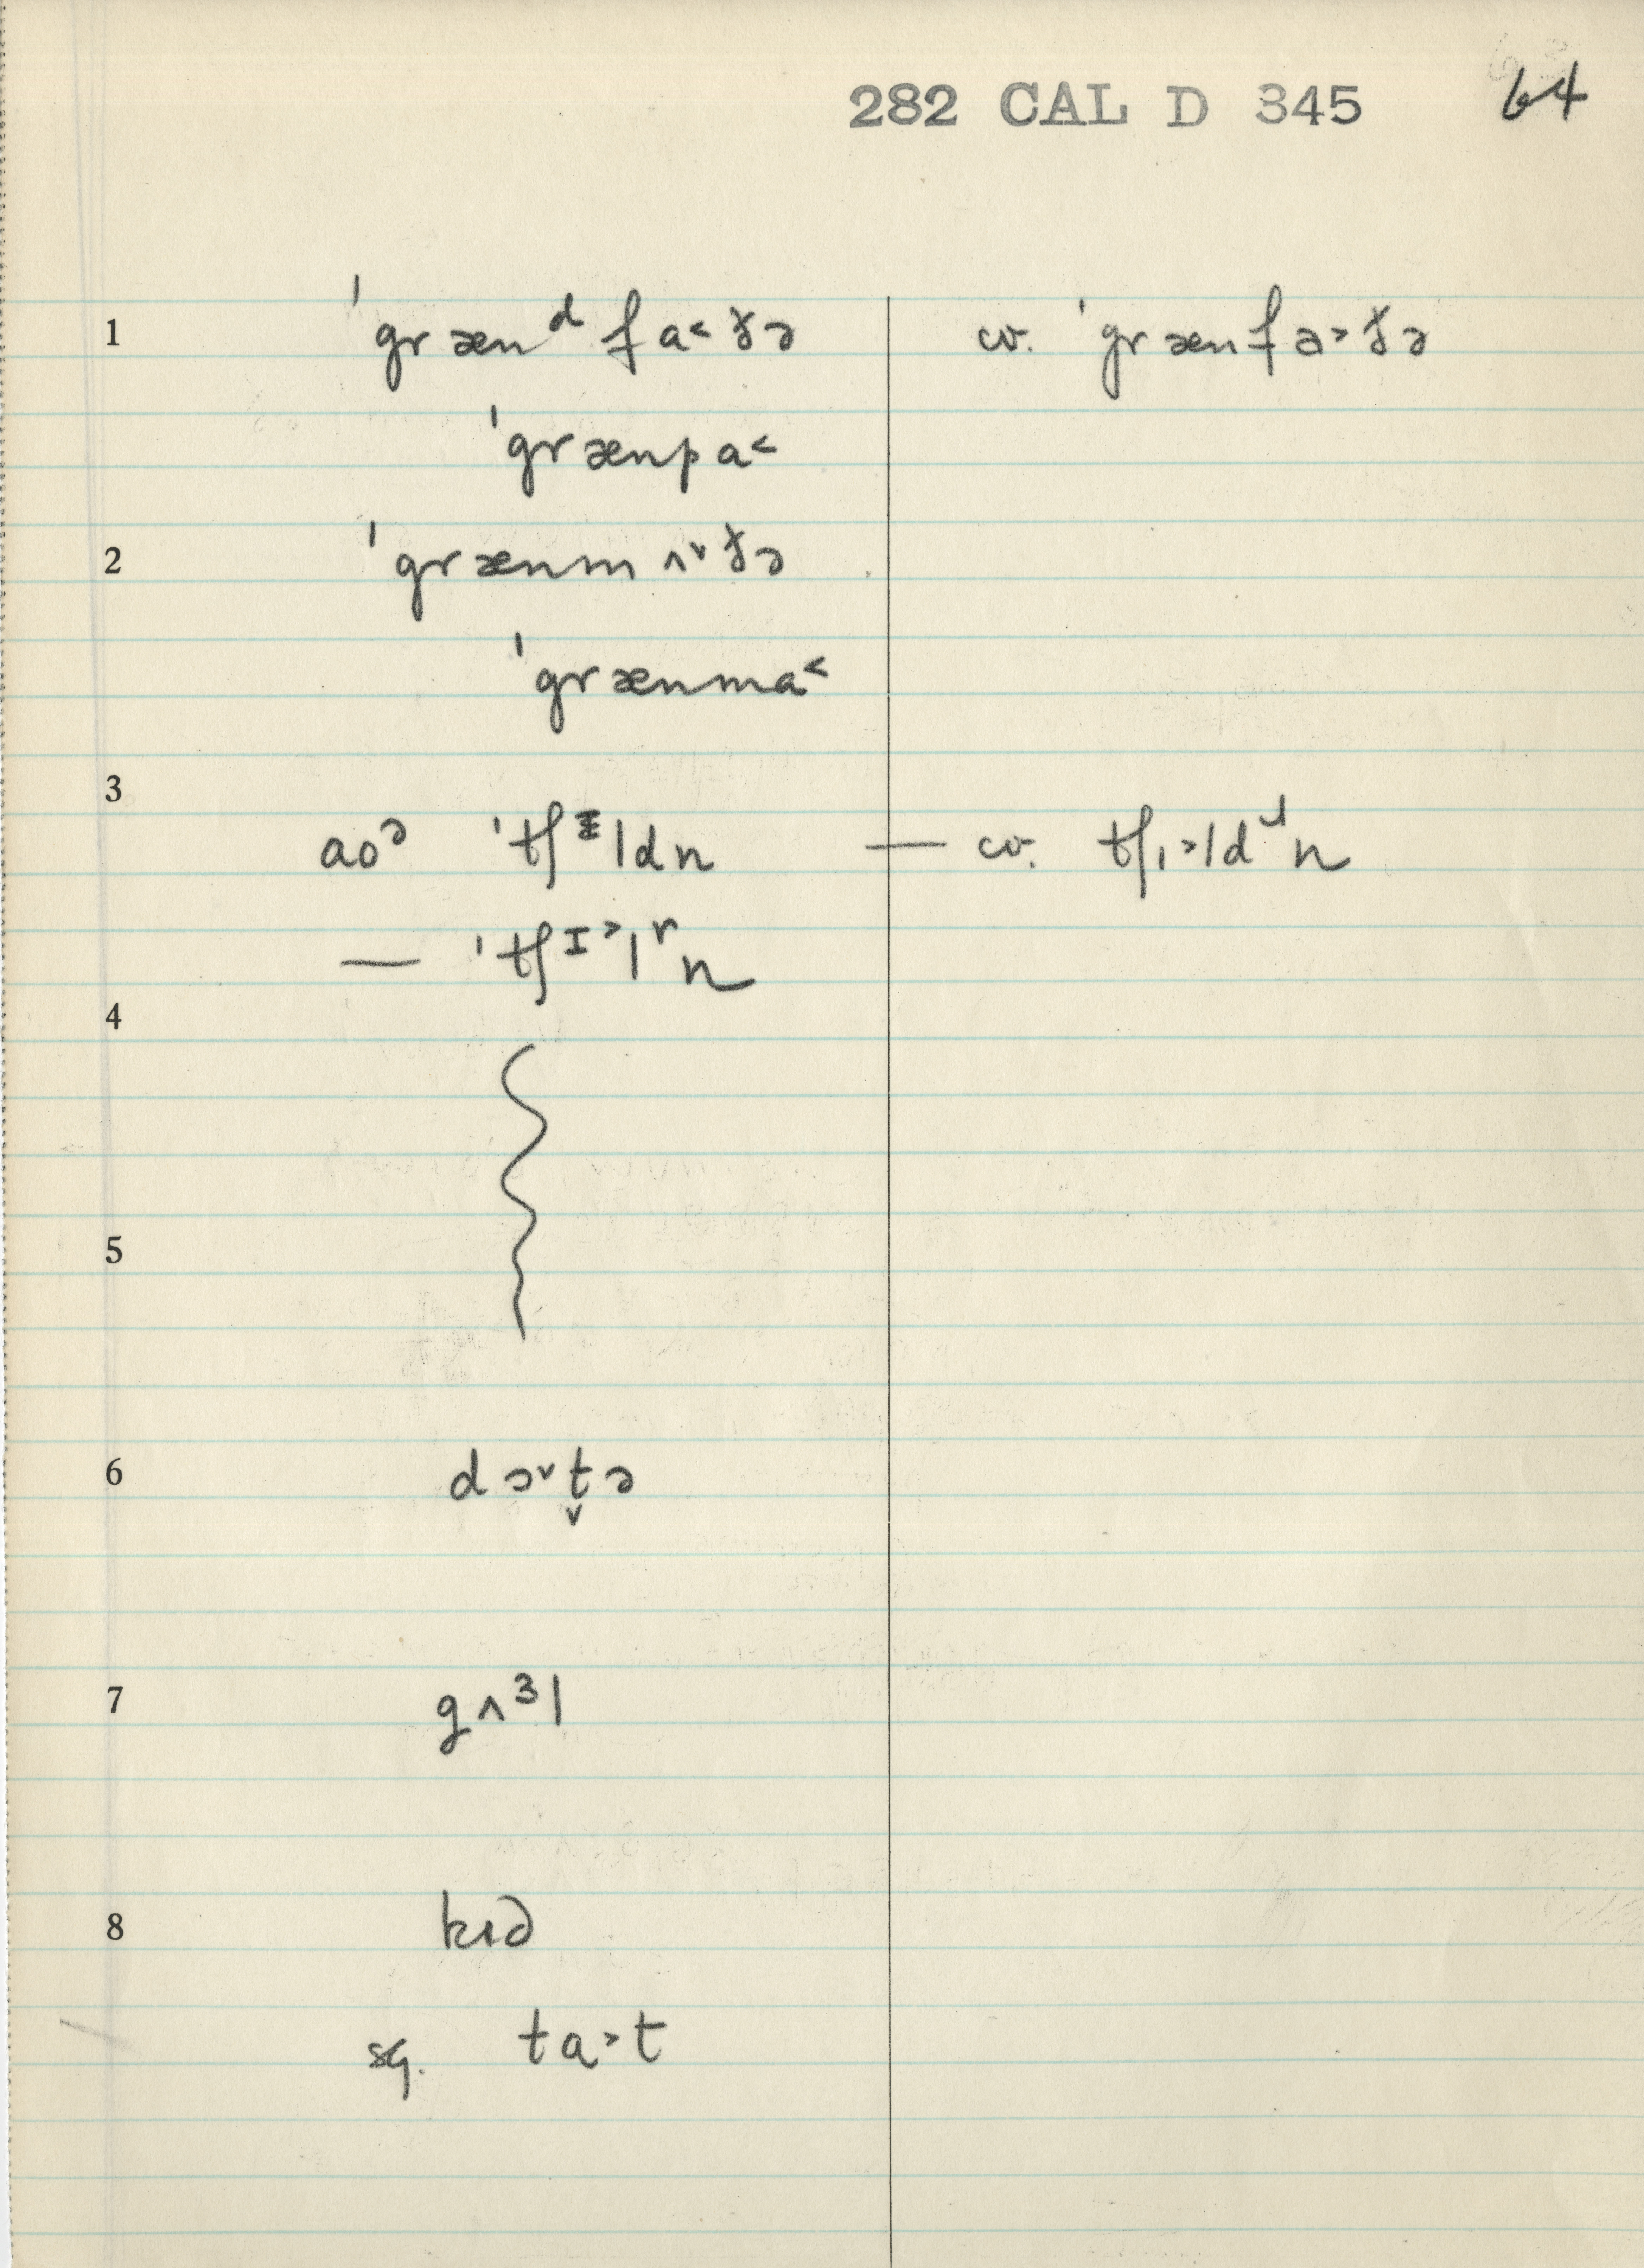 282 CAL D 345 64
1 ˈgrænᵈfa˂ðə cv. ˈgrænfa˃ðə
ˈgrænpa˂
2 ˈgrænmʌ˅ðə
ˈgrænma˂
3
aoᵊ ˈtʃɪldn — cv. tʃɪ˃ldn
— ˈtʃɪ˃lʳn
4
5
6 dɔ˅t̬ə
7 gʌᶾl
8 kɪd
sg. ta˃t